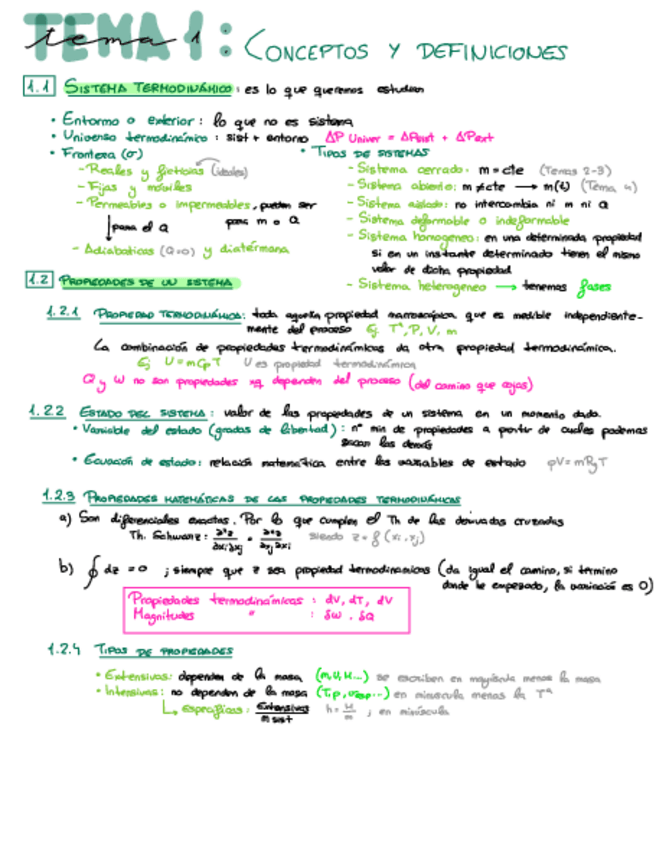 TEMA 1: CONCEPTOS Y DEFINICIONES
tema 1
1.1 SISTEMA TERMODINÁMICO: es lo que queremos estudiar
• Entorno o exterior: lo que no es sistema
• Universo termodinámico: sist + entorno ΔP Univer = ΔPsist + ΔPext
• Frontera (σ)
- Reales y ficticias (ideales)
- Fijas y móviles
- Permeables o impermeables, pueden ser
para el Q
para m o Q
- Adiabáticas (Q=0) y diatérmana
• TIPOS DE SISTEMAS
- Sistema cerrado: m = cte (Temas 2-3)
- Sistema abierto: m ≠ cte → m(t) (Tema 4)
- Sistema aislado: no intercambia ni m ni Q
- Sistema deformable o indeformable
- Sistema homogeneo: en una determinada propiedad
si en un instante determinado tienen el mismo
valor de dicha propiedad
- Sistema heterogeneo → tenemos fases
1.2 PROPIEDADES DE UN SISTEMA
1.2.1 PROPIEDAD TERMODINÁMICA: toda aquella propiedad macroscópica que es medible independiente-
mente del proceso Ej T°, P, V, m
La combinación de propiedades termodinámicas da otra propiedad termodinámica.
Ej U = m Cp T U es propiedad termodinámica
Q y W no son propiedades xq dependen del proceso (del camino que cojas)
1.2.2 ESTADO DEL SISTEMA: valor de las propedades de un sistema en un momento dado.
• Variable del estado (grados de libertad): n° min de propiedades a partir de cuales podemos
sacar las demás
• Ecuación de estado: relación matemática entre las variables de estado pV = mRgT
1.2.3 PROPIEDADES MATEMÁTICAS DE LAS PROPIEDADES TERMODINÁMICAS
a) Son diferenciales exactas. Por lo que cumplen el Th de las derivadas cruzadas
Th. Schwarz: ∂²z/∂xi∂xj = ∂²z/∂xj∂xi siendo z = f(xi, xj)
b) ∮ dz = 0 ; siempre que z sea propiedad termodinamicas (da igual el camino, si termino
donde he empezado, la variación es 0)
Propiedades termodinámicas : dV, dT, dV
Magnitudes " : δW, δQ
1.2.4 TIPOS DE PROPIEDADES
• Extensivas: dependen de la masa (m, U, H...) se escriben en mayúscula menos la masa
• Intensivas: no dependen de la masa (T, p, ...) en minuscula menos la Tª
↳ Específicas: Extensivas/m sist h = H/m ; en minúscula